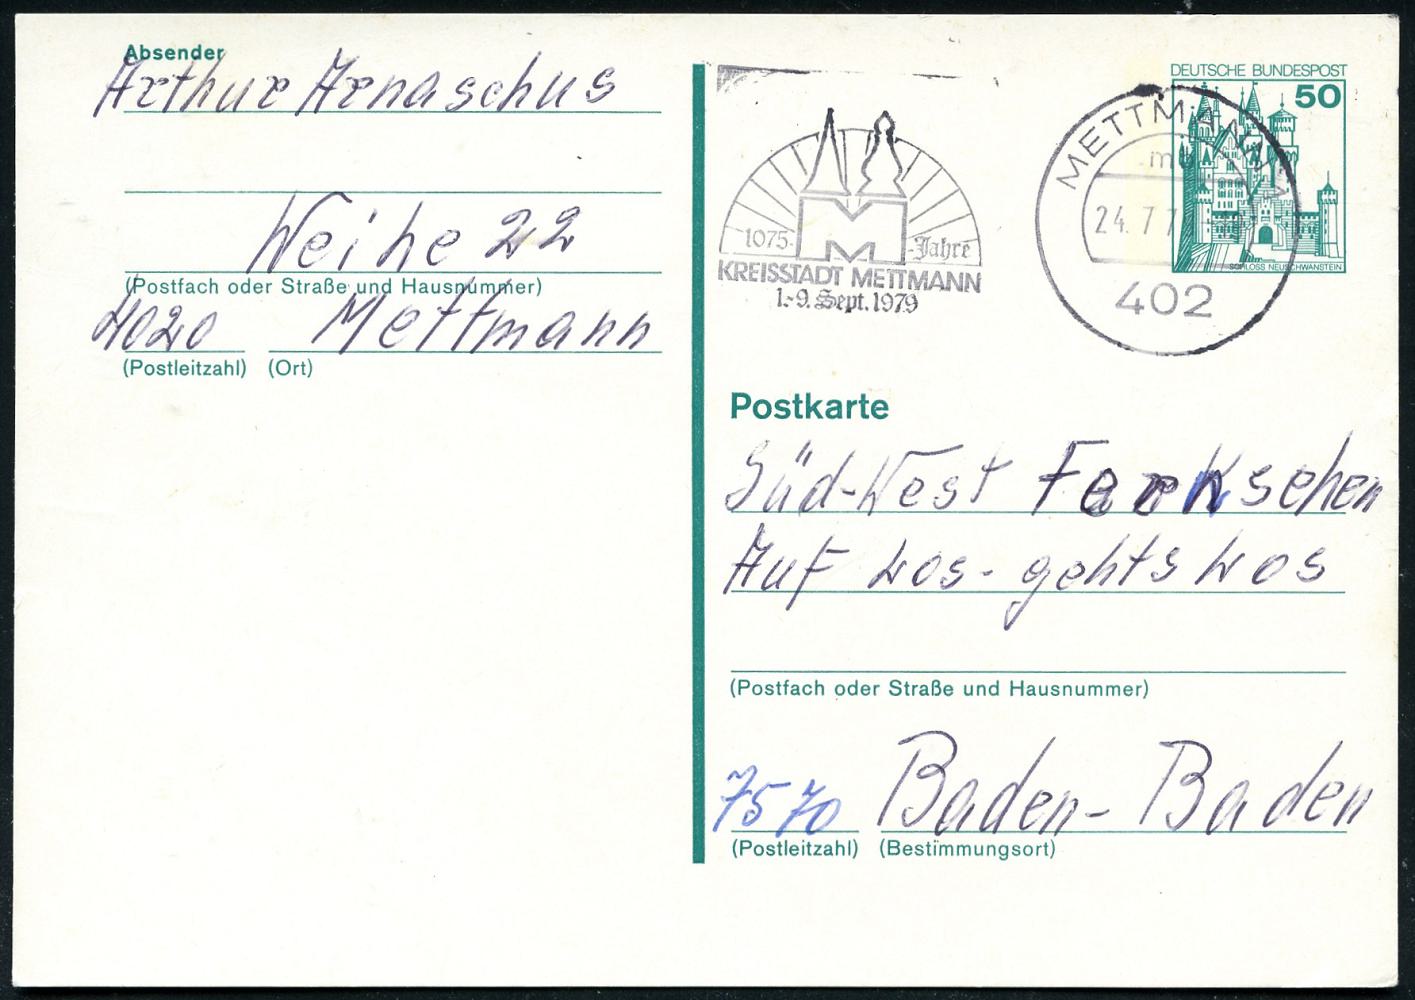 Absender
Arthur Arnaschus
Weihe 22
(Postfach oder Straße und Hausnummer)
4020 Mettmann
(Postleitzahl) (Ort)
1075 Jahre
KREISSTADT METTMANN
1.-9. Sept. 1979
METTMANN
mb
24. 7. 7
402
DEUTSCHE BUNDESPOST
50
SCHLOSS NEUSCHWANSTEIN
Postkarte
Süd-West Fernsehen
Auf Los-gehts Los
(Postfach oder Straße und Hausnummer)
7570 Baden-Baden
(Postleitzahl) (Bestimmungsort)